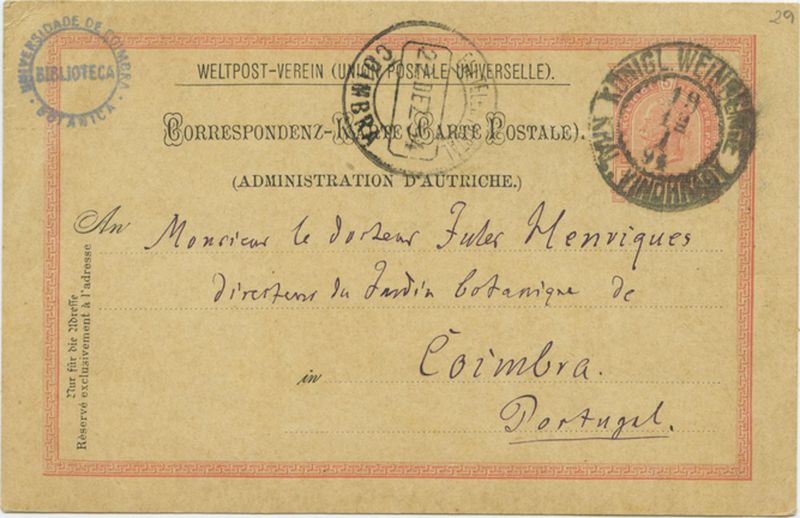 29
UNIVERSIDADE DE COIMBRA
BIBLIOTECA
BOTANICA
WELTPOST-VEREIN (UN POSTALE UNIVERSELLE).
COIMBRA
KÖNIGL. WEINBERGE
VINOHRADY
CORRESPONDENZ-KARTE (CARTE POSTALE).
(ADMINISTRATION D'AUTRICHE.)
An Monsieur le docteur Jules Henriques
directeur du Jardin botanique de
in Coimbra.
Portugal.
Nur für die Adresse
Réservé exclusivement à l'adresse